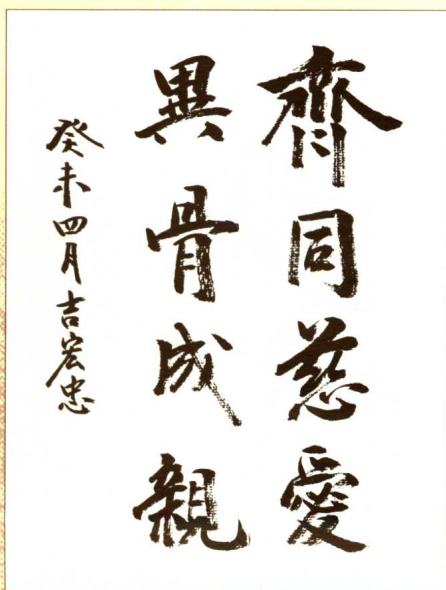 齊同慈愛
異骨成親
癸未四月吉宏忠